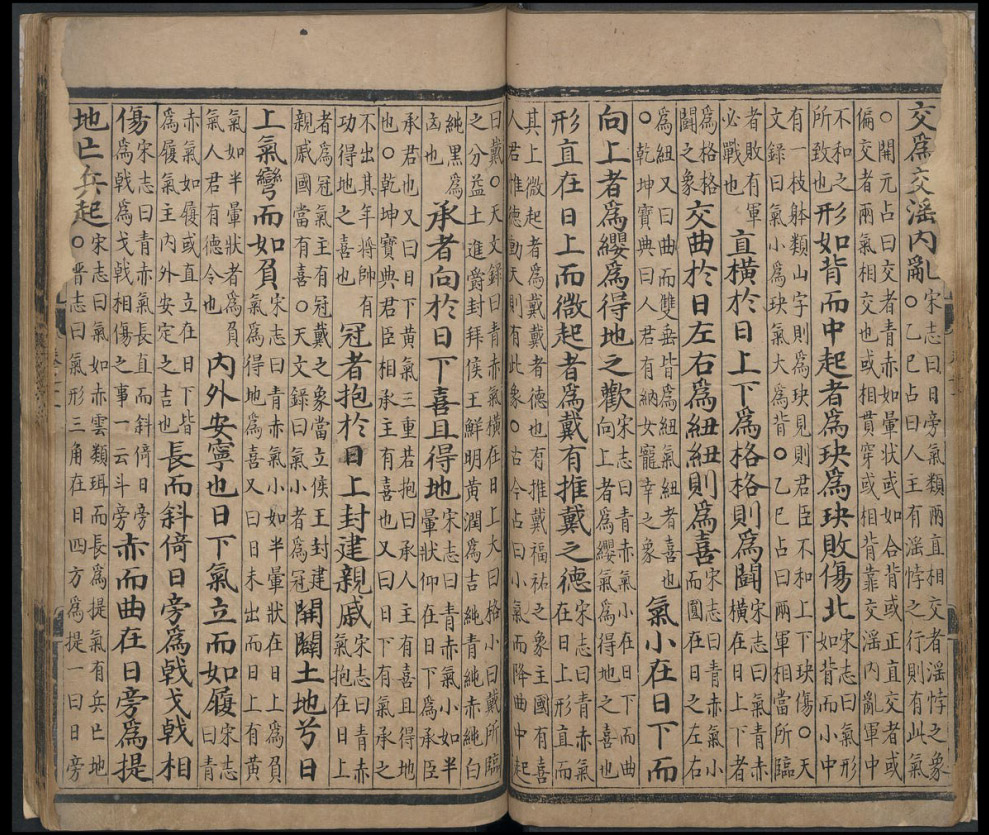 交為交滛內亂宋志曰日旁氣類兩直相交者滛悖之象
○乙巳占曰人主有滛悖之行則有此氣
○開元占曰交者青赤如暈狀或如合背或正直交者或
偏交者兩氣相交也或相貫穿或相背靠交滛內亂軍中
不和之
所致也形如背而中起者為玦為玦敗傷北宋志曰氣形
如背而小中
有一枝躰類山字則為玦見則君臣不和上下玦傷○天
文錄曰氣小為玦氣大為背○乙巳占曰兩軍相當所臨
者敗有軍
必戰也直橫於日上下為格格則為鬪宋志曰氣青赤
橫在日上下者
為格格
鬪之象交曲於日左右為紐紐則為喜宋志曰青赤氣小
而圓在日之左右
為紐又曰曲而雙垂皆為紐氣紐者喜也
○乾坤寶典曰人君有納女寵幸之象氣小在日下而
向上者為纓為得地之歡宋志曰青赤氣小在日下而曲
向上者為纓氣為得地之喜也
形直在日上而微起者為戴有推戴之德宋志曰青赤氣
在日上形直而
其上微起者為戴戴者德也有推戴福祐之象主國有喜
人君惟德動天則有此象○古今占曰小氣而降曲中起
曰戴○天文錄曰青赤氣橫在日上大曰格小曰戴所臨
之分益土進爵封拜侯王鮮明黃潤為吉純青純赤純白
純黑為
凶也承者向於日下喜且得地宋志曰青赤氣小如半
暈狀仰在日下為承臣
承君也又曰日下黃氣三重若抱曰承人主有喜且得地
也○乾坤寶典君臣相承主有喜也又曰日下有氣之
不出其年將帥有
功得地之喜也冠者抱於日上封建親戚宋志曰青赤
氣抱在日上
者為冠氣主有冠戴之象當立侯王封建
親戚國當有喜○天文錄曰氣小者為冠開闢土地兮日
上氣彎而如負宋志曰青赤氣小如半暈狀在日上為負
氣為得地為喜又曰日未出而日上有黃
氣如半暈狀者為負
氣人君有德令也內外安寧也日下氣立而如履宋志
曰青
赤氣如履或直立在日下皆
為履氣主內外安定之吉也長而斜倚日旁為戟戈戟相
傷宋志曰青赤氣長直而斜倚日旁
為戟為戈戟相傷之事一云斗旁赤而曲在日旁為提
地亡兵起○宋志曰氣如赤雲類珥而長為提氣有兵亡地
○晋志曰氣形三角在日四方為提一曰日旁